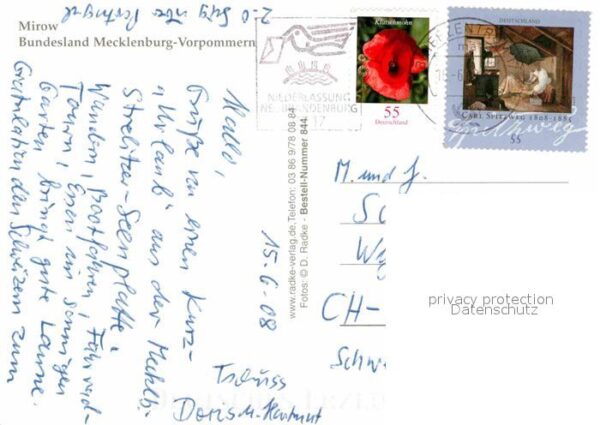 Mirow
Bundesland Mecklenburg-Vorpommern
Hallo,
Grüße von einem Kurz-
"Urlaub" aus der Mecklb.-
Strelitzer-Seenplatte!
Wandern, Bootfahren, Fahrrad-
Touren, Essen im sonnigen
Garten, bringt gute Laune.
Gratulation den Schweizern zum
2-0 Sieg
Portugal
15.6.08
Tschüss
Doris u. Hartmut
www.radke-verlag.de, Telefon: 03 86 9/78 08 84
Fotos: © D. Radke - Bestell-Nummer 844
NIEDERLASSUNG
NEUBRANDENBURG
17
Klatschmohn
55
Deutschland
DEUTSCHLAND
CARL SPITZWEG 1808-1885
Spitzweg
55
M. und J.
CH-
Schw
privacy protection
Datenschutz